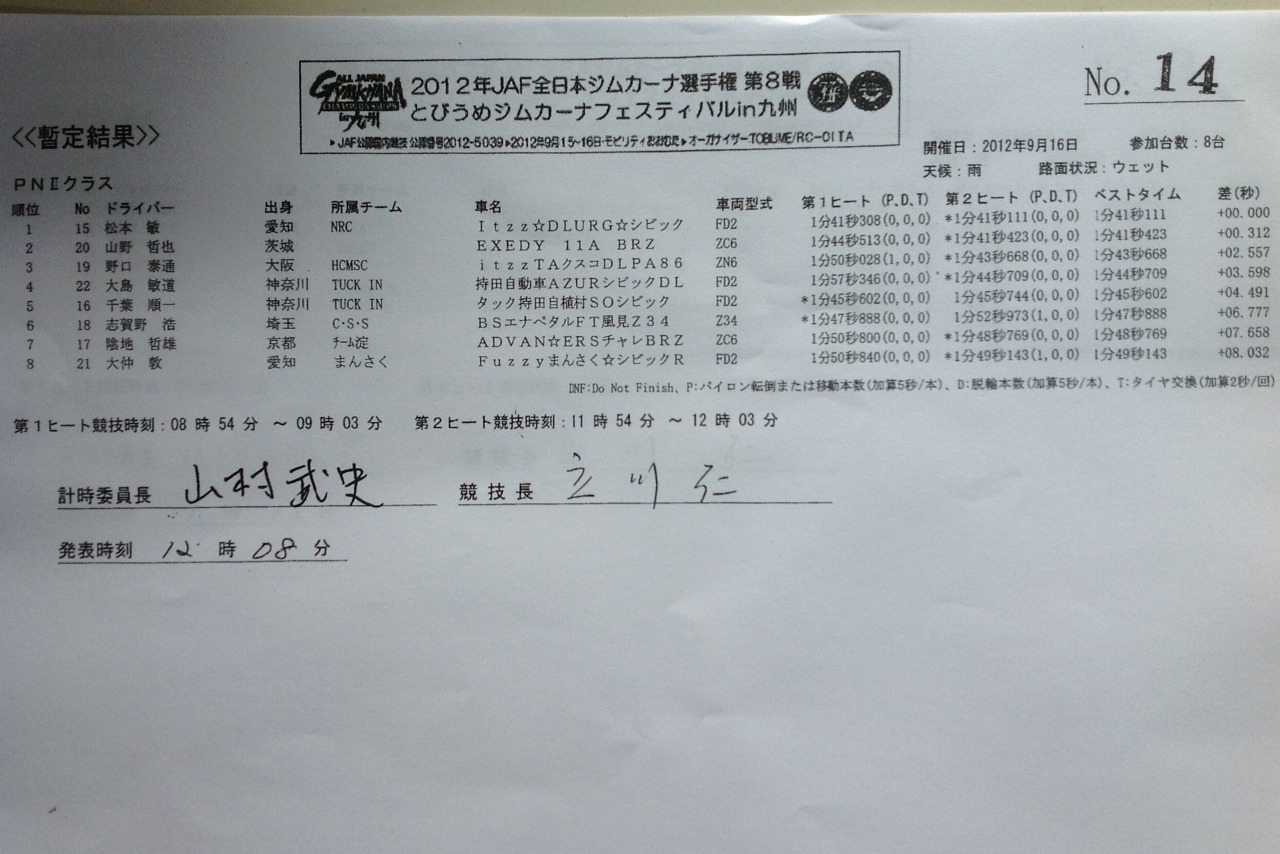 No. 14
ALL JAPAN
GYMKHANA
CHAMPIONSHIPS
in 九州
2012年JAF全日本ジムカーナ選手権 第8戦
とびうめジムカーナフェスティバルin九州
▶JAF公認国内競技 公認番号2012-5039▶2012年9月15~16日・モビリティおおむた▶オーガナイザー・TOBIUME/RC-OITA
<<暫定結果>>
開催日：2012年9月16日 参加台数：8台
天候：雨 路面状況：ウェット
ＰＮⅡクラス
順位 No ドライバー 出身 所属チーム 車名 車両型式 第１ヒート (P,D,T) 第２ヒート (P,D,T) ベストタイム 差(秒)
1 15 松本 敏 愛知 NRC Ｉｔｚｚ☆ＤＬＵＲＧ☆シビック FD2 1分41秒308(0,0,0) *1分41秒111(0,0,0) 1分41秒111 +00.000
2 20 山野 哲也 茨城 ＥＸＥＤＹ １１Ａ ＢＲＺ ZC6 1分44秒513(0,0,0) *1分41秒423(0,0,0) 1分41秒423 +00.312
3 19 野口 泰通 大阪 HCMSC ｉｔｚｚＴＡクスコＤＬＰＡ８６ ZN6 1分50秒028(1,0,0) *1分43秒668(0,0,0) 1分43秒668 +02.557
4 22 大島 敏道 神奈川 TUCK IN 持田自動車ＡＺＵＲシビックＤＬ FD2 1分57秒346(0,0,0) *1分44秒709(0,0,0) 1分44秒709 +03.598
5 16 千葉 順一 神奈川 TUCK IN タック持田自植村ＳＯシビック FD2 *1分45秒602(0,0,0) 1分45秒744(0,0,0) 1分45秒602 +04.491
6 18 志賀野 浩 埼玉 C･S･S ＢＳエナペタルＦＴ風見Ｚ３４ Z34 *1分47秒888(0,0,0) 1分52秒973(1,0,0) 1分47秒888 +06.777
7 17 陰地 哲雄 京都 ﾁｰﾑ淀 ＡＤＶＡＮ☆ＥＲＳチャレＢＲＺ ZC6 1分50秒800(0,0,0) *1分48秒769(0,0,0) 1分48秒769 +07.658
8 21 大仲 敦 愛知 まんさく Ｆｕｚｚｙまんさく☆シビックＲ FD2 1分50秒840(0,0,0) *1分49秒143(1,0,0) 1分49秒143 +08.032
DNF:Do Not Finish、P:パイロン転倒または移動本数(加算5秒/本)、D:脱輪本数(加算5秒/本)、T:タイヤ交換(加算2秒/回)
第１ヒート競技時刻：08 時 54 分 ～ 09 時 03 分 第２ヒート競技時刻：11 時 54 分 ～ 12 時 03 分
計時委員長 山村武史 競技長 立川仁
発表時刻 12 時 08 分